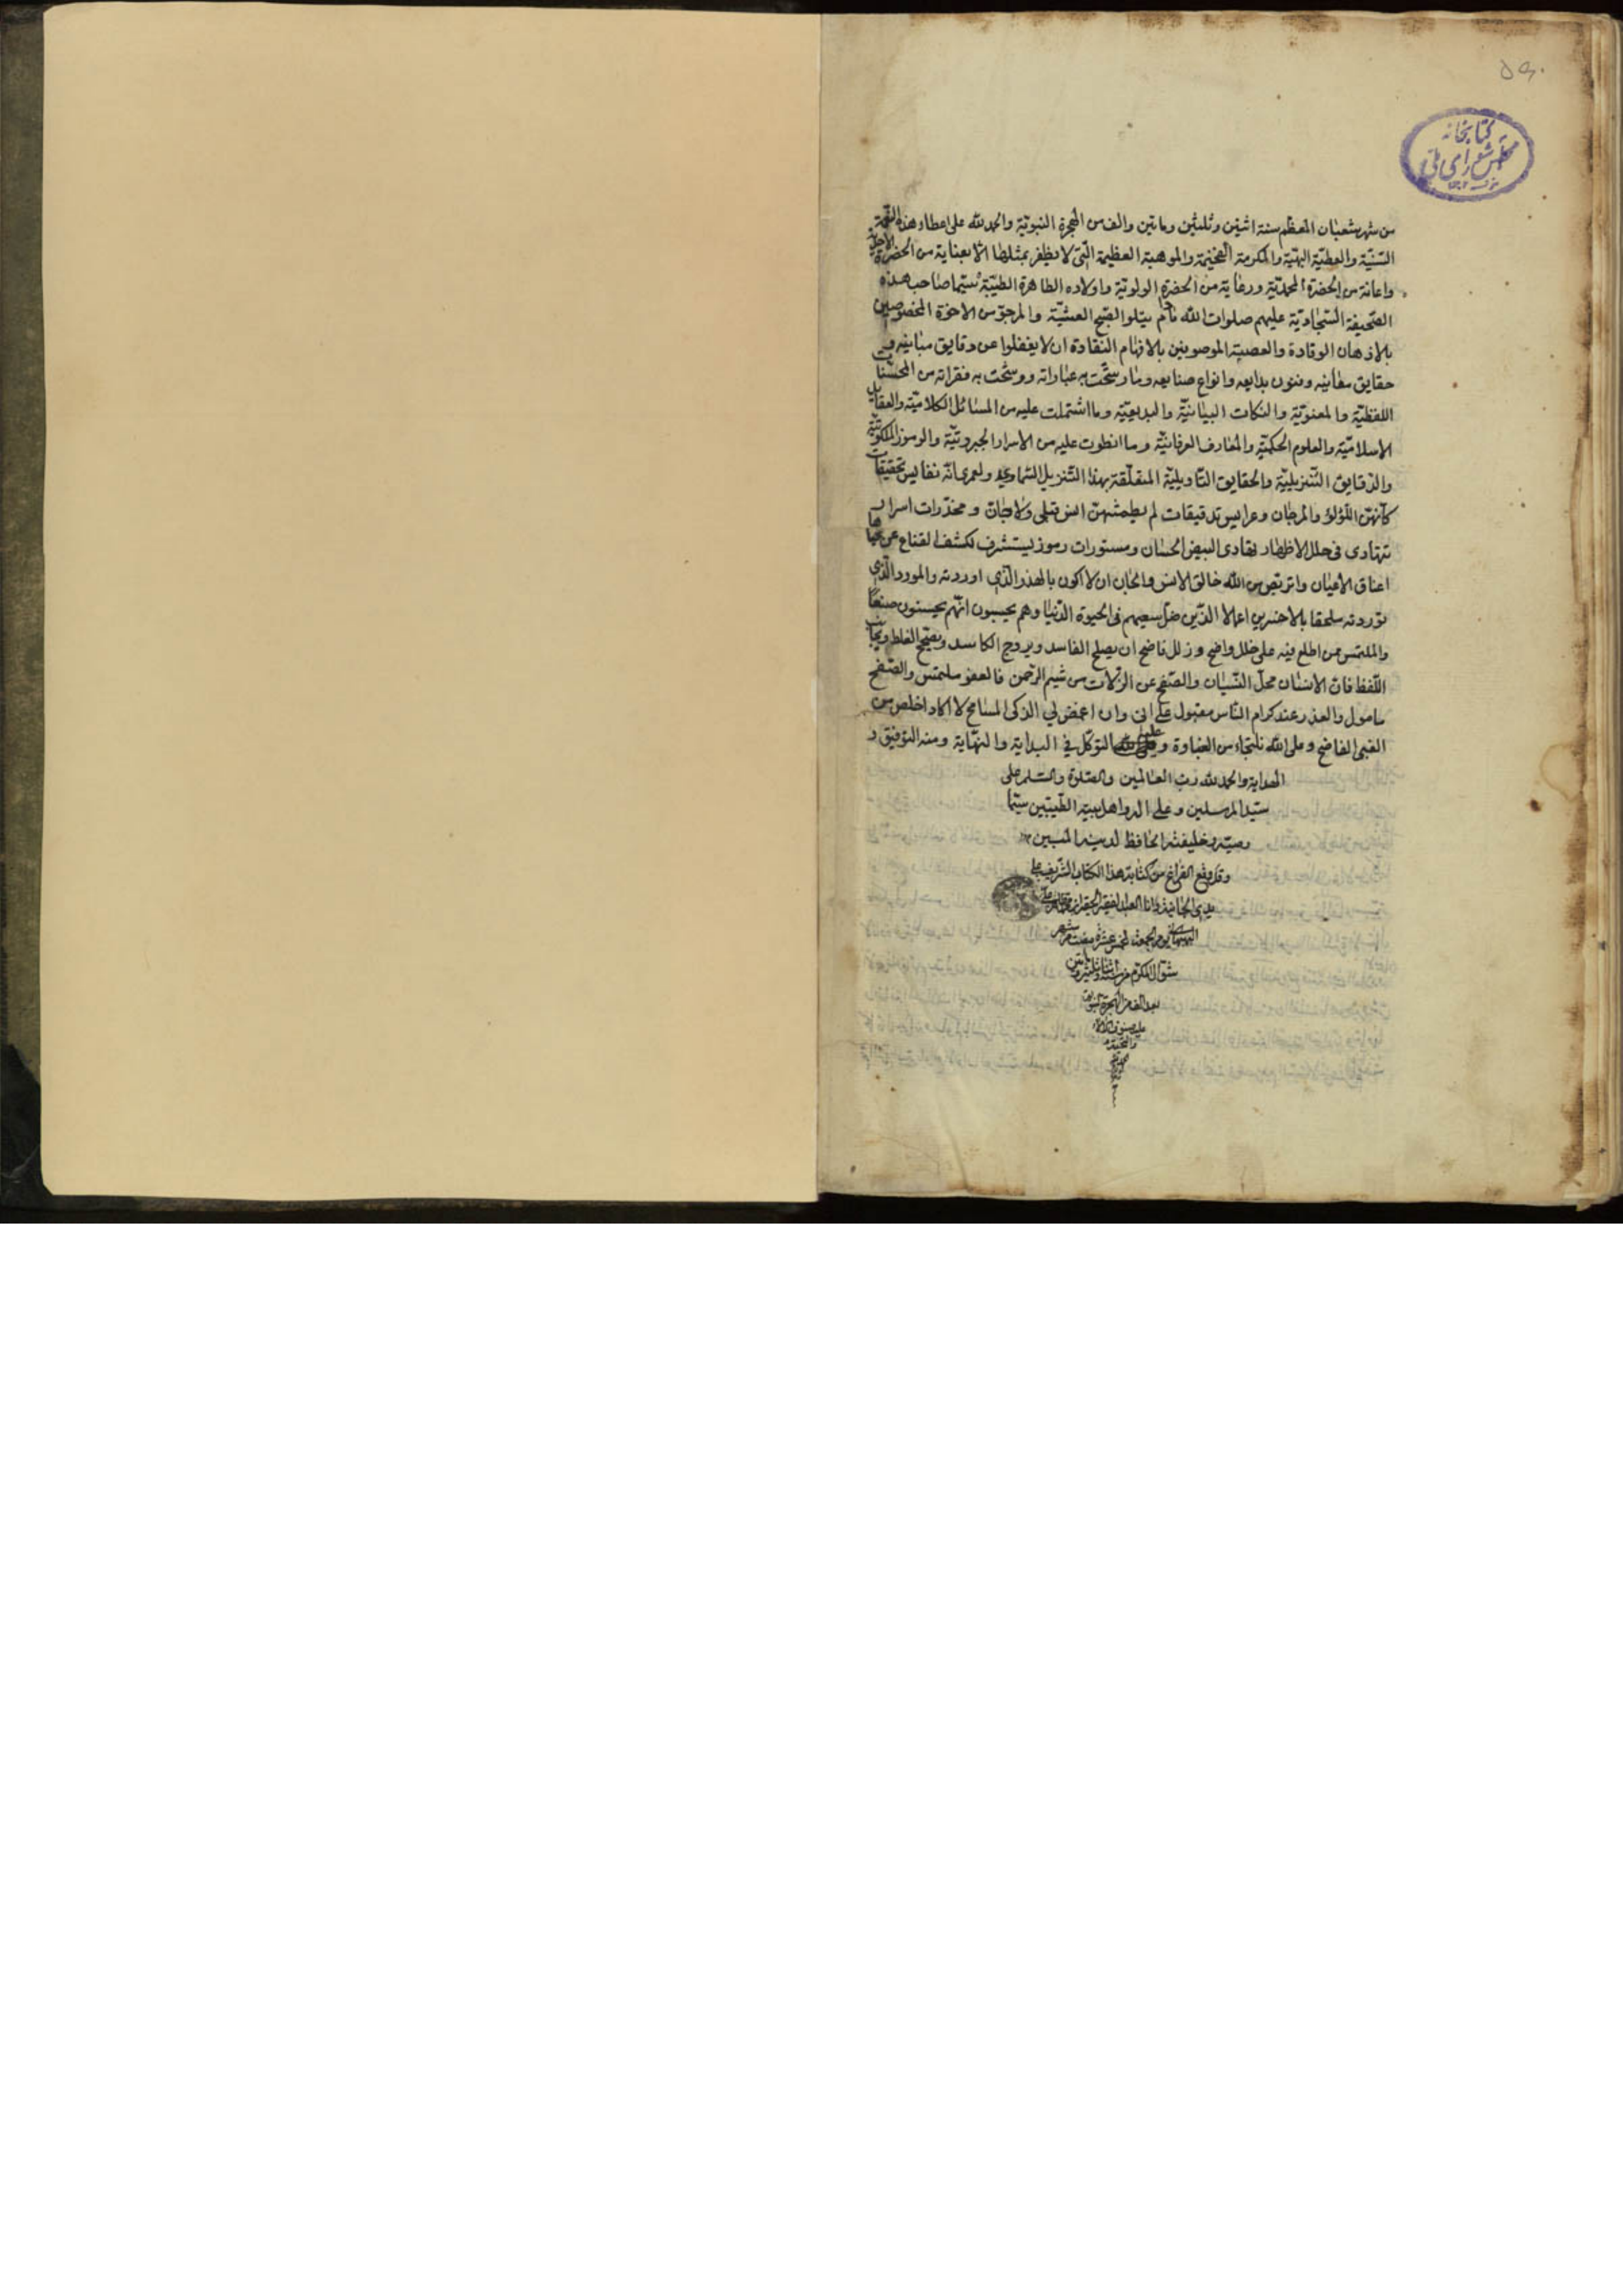 ۵۹۰
کتابخانه
مجلس شورای ملی
من شهر شعبان المعظم سنة اثنتين وثلثين وماتين والف من الهجرة النبويّة والحمد لله على اعطاء هذه النعمة
السّنيّة والعطيّة البهيّة والمكرمة الفخيمة والموهبة العظيمة الّتى لا يظفر بمثلها الا بعناية من الحضرة الاحديّة
واعانة من الحضرة المحمديّة ورعاية من الحضرة الولويّة واولاده الطاهرة الطيّبة سيّما صاحب هذه
الصّحيفة السّجاديّة عليهم صلوات الله ما دام يتلو الصّبح العشيّة والمرجوّ من الاخوة المخصوصين
بالاذهان الوقادة والعصبة الموصوفين بالافهام النقادة ان لا يغفلوا عن دقايق مبانيه و
حقايق معانيه وفنون بدايعه وانواع صنايعه وما رسّخت به عباراته ووشّحت به فقراته من المحسّنات
اللفظيّة والمعنويّة والنكات البيانيّة والبديعيّة وما اشتملت عليه من المسائل الكلاميّة والعقايد
الاسلاميّة والعلوم الحكميّة والمعارف العرفانيّة وما انطوت عليه من الاسرار الجبروتيّة والرموز الملكوتيّة
والدّقايق التّنزيليّة والحقايق التّاويليّة المتعلّقة بهذا التّنزيل السّماوي ولعمرى انّه نفايس تحقيقات
كأنهنّ اللّؤلؤ والمرجان وعرايس تدقيقات لم يطمثهنّ انس قبلى ولا جانّ ومخدّرات اسرار
تتهادى فى حلل الاظهار تهادى البيض الحسان ومستورات رموز ليستشرف لكشف القناع عن
اعناق الاعيان واتربّص من الله خالق الانس والجان ان لا اكون بالهذر الّذي اوردته والمورد الّذي
تورّدته ملحقا بالاخسرين اعمالا الّذين ضلّ سعيهم فى الحيوة الدّنيا وهم يحسبون انّهم يحسنون صنعًا
والملتمس ممن اطلع فيه على خلل واضح وزلل فاضح ان يصلح الفاسد ويروج الكاسد ويصحّح الغلط
اللّفظ فانّ الانسان محلّ النّسيان والصّفح عن الزلّات من شيم الرّحمن فالعفو ملتمس والصّفح
مامول والعذر عند كرام النّاس مقبول على انى وان اغمض لي الذكى المسامح لا اكاد اخلص من
الغبى الفاضح وعلى الله من الغباوة وعليه التوكّل في البداية والنهاية ومنه التوفيق و
الهداية والحمد لله ربّ العالمين والصّلوة والسّلم على
سيّد المرسلين وعلى اله واهل بيته الطّيّبين سيّما
وصيّه وخليفته الحافظ لدينه المبين
وقد وقع الفراغ من كتابة هذا الكتاب الشّريف على
يدي الجانية وانا العبد الفقير الحقير
يوم الجمعة لخمس عشرة مضت من شهر
شوال المكرّم من
بعد الالف من الهجرة النبويّة
عليه صنوف
والتحيّة